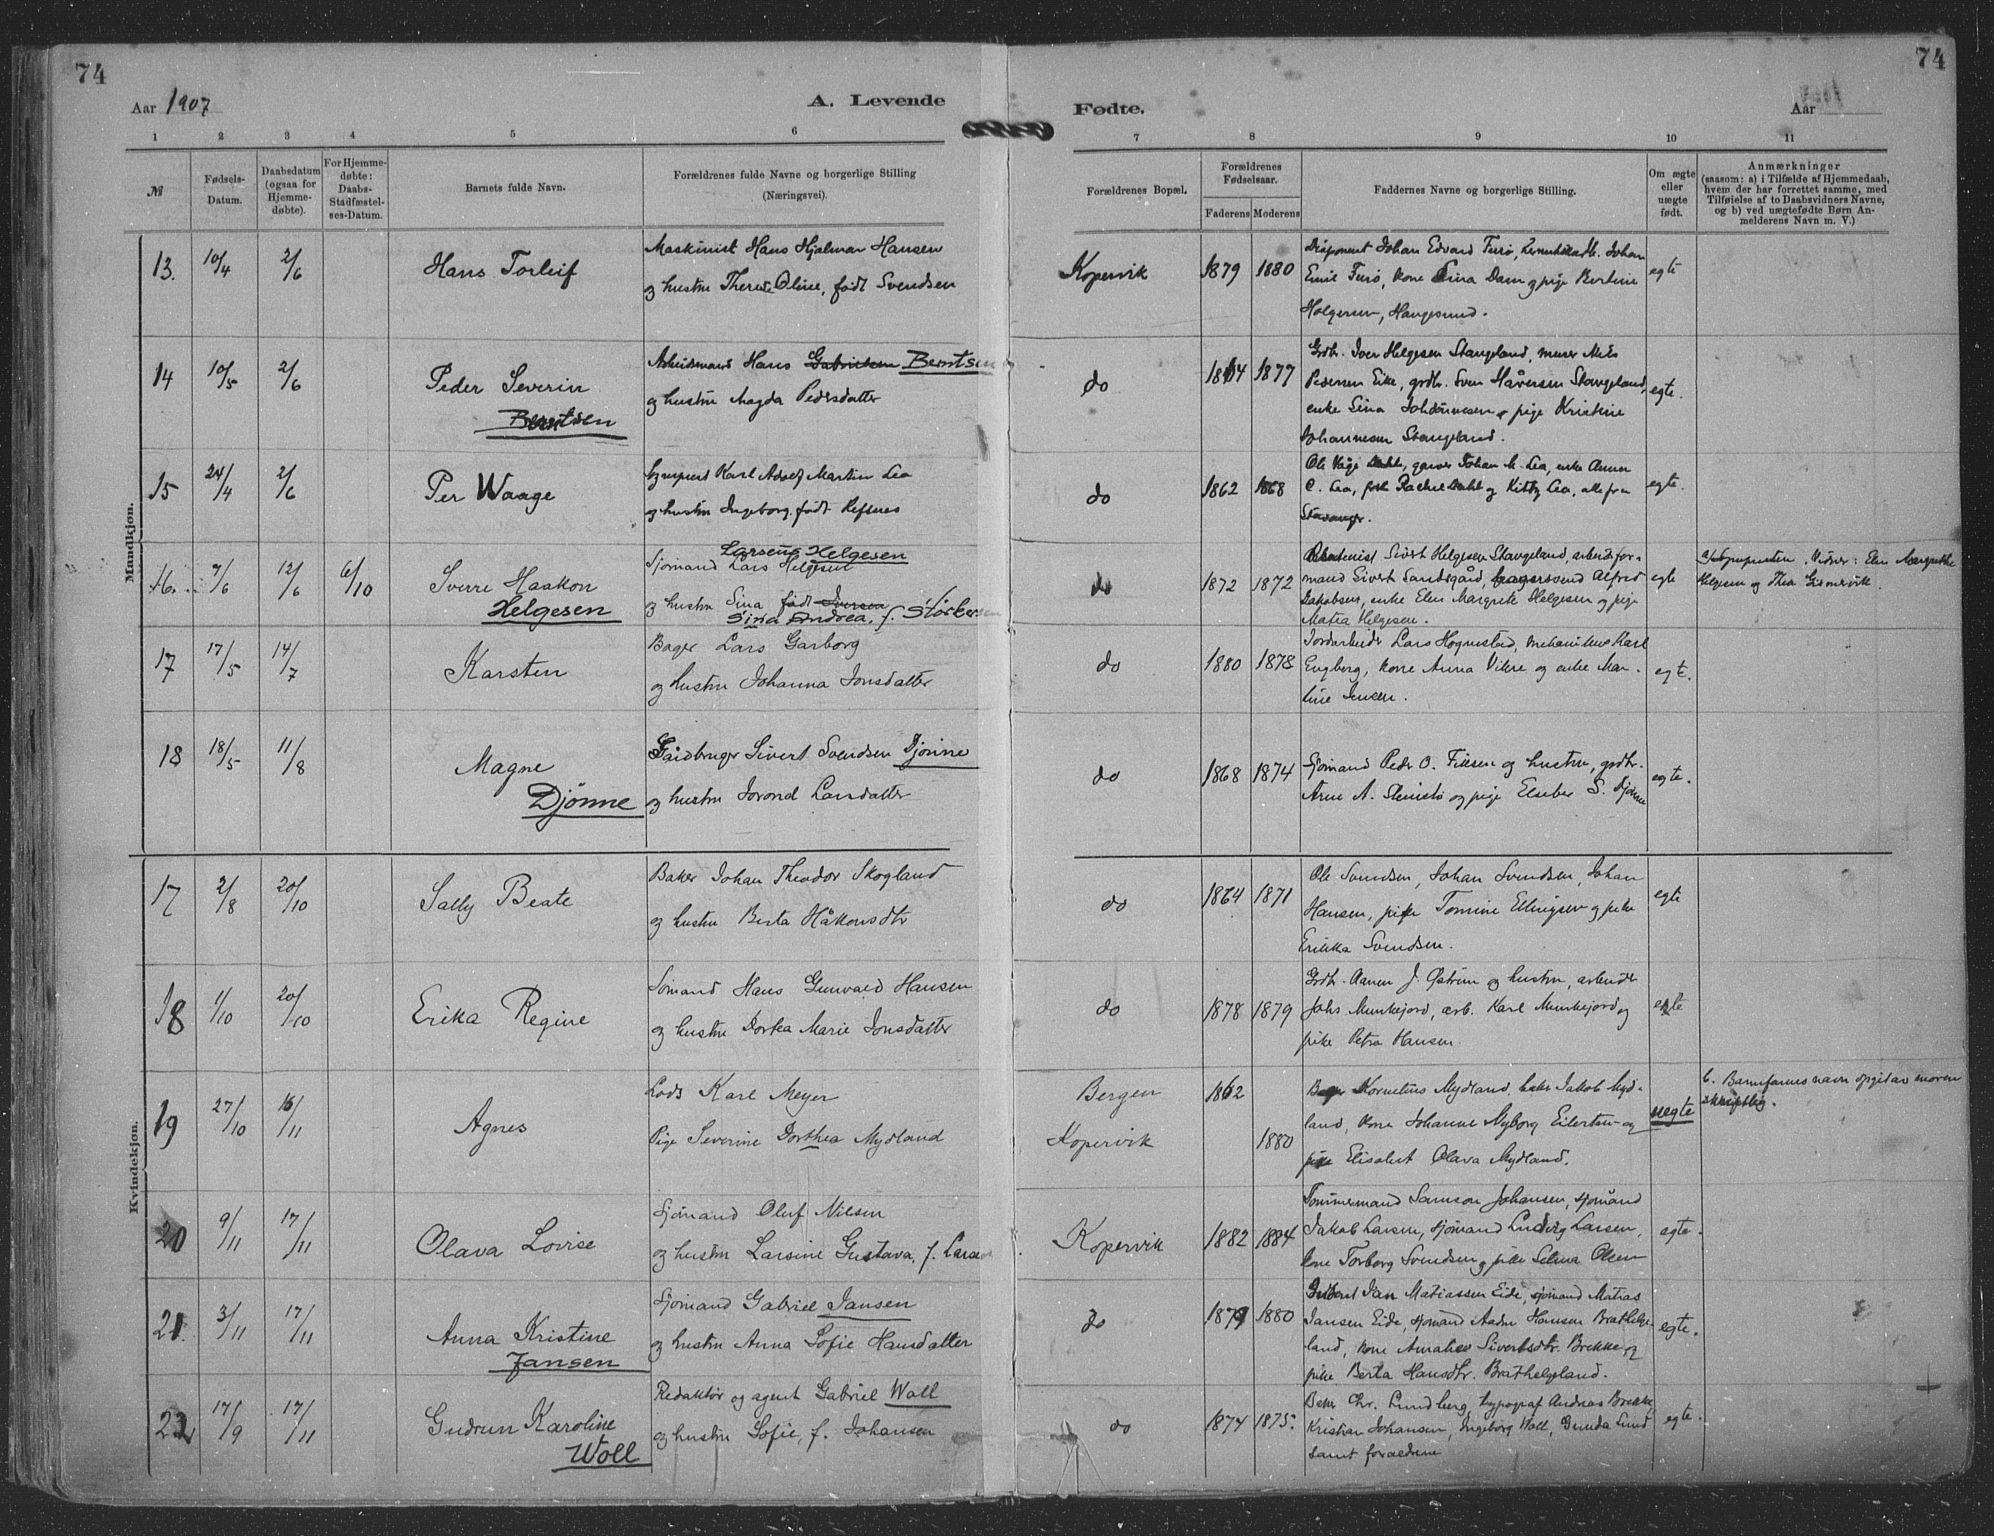 74
74
Aar 1907
A. Levende
Fødte.
Aar
1 2 3 4 5 6
7 8 9 10 11
№
Fødsels-
Datum.
Daabsdatum
(ogsaa for
Hjemme-
døbte).
For Hjemme-
døbte:
Daabs-
Stadfæstel-
ses-Datum.
Barnets fulde Navn.
Forældrenes fulde Navne og borgerlige Stilling
(Næringsvei).
Forældrenes Bopæl.
Forældrenes
Fødselsaar.
Faderens Moderens
Faddernes Navne og borgerlige Stilling.
Om ægte
eller
uægte
født.
Anmærkninger
(saasom: a) i Tilfælde af Hjemmedaab,
hvem der har forrettet samme, med
Tilføielse af to Daabsvidners Navne,
og b) ved uægtefødte Børn An-
melderens Navn m. V.)
Mandkjøn.
13. 10/4 2/6
Hans Torleif
Maskinist Hans Hjalmar Hansen
og hustru Therese Oline, født Svendsen
Kopervik 1879 1880
Disponent Johan Edvard Fursø, Johan
Emil Fursø, kone Sina Dam og pige Bertine
Holgersen, Haugesund.
egte
14 10/5 2/6
Peder Severin
Berntsen
Arbeidsmand Hans Gabrielsen Berntsen
og hustru Magda Pedersdatter
do 1877
Grdbr. Iver Helgesen Stangeland, murer Nils
Pedersen Eike, grdbr. Sven Håversen Stangeland,
enke Sina Johannesen, pige Kristine
Johannesen Stangeland.
egte.
15 24/4 2/6
Per Waage
Karl Adolf Martin Lea
og hustru Ingeborg, født Refsnes
do 1862 1868
Ole Våge, garver Johan M. Lea, enke Anna
C. Lea, Rachel Dahl og Kitty Lea, alle fra
Stavanger.
egte.
16. 7/6 12/6 6/10
Sverre Haakon
Helgesen
Larsens Helgesen
Sjømand Lars Helgesen
og hustru Sina født Iversen
Sina Andrea, f. Størkersen
do 1872 1872
Sivert Helgesen Stangeland, arbeidsfor-
mand Sivert Sandsgård, bagersvend Alfred
Jakobsen, enke Elen Margrete Helgesen og pige
Matea Helgesen.
egte
Vidner: Elen Margrethe
Helgesen og Thea
17 17/5 14/7
Karsten
Bager Lars Garborg
og hustru Johanna Jonsdatter
do 1880 1878
Jordarbeider Lars Hognestad, mekanikus Karl
Engberg, kone Anna Vikre og enke Mar-
tine Jensen.
egte.
18 18/5 11/8
Magne
Djönne
Gårdbruger Sivert Svendsen Djönne
og hustru Jorond Larsdatter
do 1868 1874
Sjømand Peder O. Eriksen og hustru, grdbr.
Arne A. Steinstø og pige Elseber S. Djönne
egte.
Kvindekjøn.
17 2/8 20/10
Sally Beate
Baker Johan Theodor Skogland
og hustru Berta Håkonsdtr
do 1864 1871
Ole Svendsen, Johan Svendsen, Johan
Hansen, pike Tomine Ellingsen og pike
Erikka Svendsen.
egte
18 1/10 20/10
Erika Regine
Sømand Hans Gunvald Hansen
og hustru Dortea Marie Jonsdatter
do 1878 1879
Grdbr. Aanen J. Østrem og hustru, arbeider
Johs Munkejord, arb. Karl Munkejord og
pike Petra Hansen.
egte
19 27/10 16/11
Agnes
Lods Karl Meyer
Pige Severine Dorthea Mydland
Bergen 1862
Kopervik 1880
Bager Kornelius Mydland, baker Jakob Myd-
land, kone Johanne Nyborg Eilertsen og
pike Elisabet Olava Mydland.
uegte
b. Barnefarens navn opgit av moren
skriftlig.
20 9/11 17/11
Olava Lovise
Sjømand Oluf Nilsen
og hustru Larsine Gustava, f. Larsen
Kopervik 1882 1884
Tømmermand Samson Johansen, sjømand
Jakob Larsen, sjømand Ludvig Larsen,
kone Torborg Svendsen og pike Selma Olsen
egte.
21. 3/11 17/11
Anna Kristine
Jansen
Sjømand Gabriel Jansen
og hustru Anna Sofie Hansdatter
do 1879 1880
Jan Matiassen Eide, sjømand Matias
Jansen Eide, sjømand Aadne Hansen Brathelge-
land, kone Sivertsdtr. Brekke og
pike Berta Hansdtr. Brathelgeland.
egte.
22 17/9 17/11
Gudrun Karoline
Woll
Redaktør og agent Gabriel Woll
og hustru Sofie, f. Johansen
do 1874 1875.
Baker Chr. Lundberg, typograf Andreas Brekke,
Kristian Johansen, Ingeborg Woll, Gunda Lund
samt forældrene
egte.